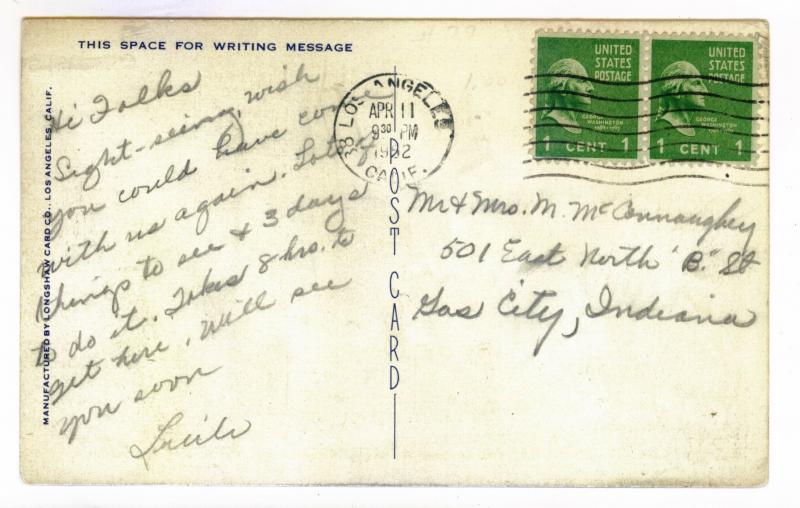 THIS SPACE FOR WRITING MESSAGE
Hi Folks
Sight-seeing, wish
you could have come
with us again. Lots of
things to see & 3 days
to do it. Takes 8 hrs. to
get here. Will see
you soon
Lucile
MANUFACTURED BY LONGSHAW CARD CO., LOS ANGELES, CALIF.
POST CARD
LOS ANGELES
APR 11
9 30 PM
CALIF.
UNITED
STATES
POSTAGE
GEORGE
WASHINGTON
1 CENT 1
UNITED
STATES
POSTAGE
GEORGE
WASHINGTON
1 CENT 1
Mr & Mrs. M. McConnaughey
501 East North "B." St
Gas City, Indiana